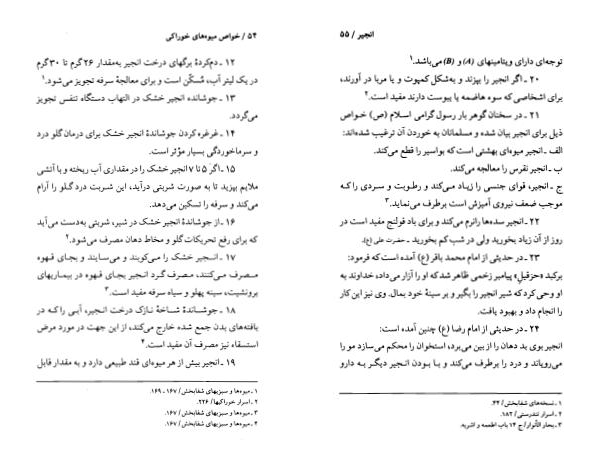 ۵۴ / خواص میوه‌های خوراکی
۱۲ ـ دم‌کردهٔ برگهای درخت انجیر به‌مقدار ۲۶ گرم تا ۳۰ گرم
در یک لیتر آب، مُسکّن است و برای معالجهٔ سرفه تجویز می‌شود.۱
۱۳ ـ جوشاندهٔ انجیر خشک در التهاب دستگاه تنفس تجویز
می‌گردد.
۱۴ ـ غرغره کردن جوشاندهٔ انجیر خشک برای درمان گلو درد
و سرماخوردگی بسیار مؤثر است.
۱۵ ـ اگر ۵ تا ۷ انجیر خشک را در مقداری آب ریخته و با آتشی
ملایم بپزید تا به صورت شربتی درآید، این شربت درد گلو را آرام
می‌کند و سرفه را تسکین می‌دهد.
۱۶ ـ از جوشاندهٔ انجیر خشک در شیر، شربتی به‌دست می‌آید
که برای رفع تحریکات گلو و مخاط دهان مصرف می‌شود.۲
۱۷ ـ انجیر خشک را می‌کوبند و می‌سایند و بجای قهوه
مصرف می‌کنند، مصرف گرد انجیر بجای قهوه در بیماریهای
برونشیت، سینه پهلو و سیاه سرفه مفید است.۳
۱۸ ـ جوشاندهٔ شاخهٔ نازک درخت انجیر، آبی را که در
بافته‌های بدن جمع شده خارج می‌کند، از این جهت در مورد مرض
استسقاء نیز مصرف آن مفید است.۴
۱۹ ـ انجیر بیش از هر میوه‌ای قند طبیعی دارد و به مقدار قابل
۱ ـ میوه‌ها و سبزیهای شفابخش / ۱۶۷ ـ ۱۶۹.
۲ ـ اسرار خوراکیها / ۲۲۶.
۳ ـ میوه‌ها و سبزیهای شفابخش / ۱۶۷.
۴ ـ میوه‌ها و سبزیهای شفابخش / ۱۶۷.
انجیر / ۵۵
توجه‌ای دارای ویتامینهای (A) و (B) می‌باشد.۱
۲۰ ـ اگر انجیر را بپزند و به‌شکل کمپوت و یا مربا در آورند،
برای اشخاصی که سوء هاضمه یا یبوست دارند مفید است.۲
۲۱ ـ در سخنان گوهر بار رسول گرامی اسلام (ص) خواص
ذیل برای انجیر بیان شده و مسلمانان به خوردن آن ترغیب شده‌اند:
الف ـ انجیر میوه‌ای بهشتی است که بواسیر را قطع می‌کند.
ب ـ انجیر نقرس را معالجه می‌کند.
ج ـ انجیر، قوای جنسی را زیاد می‌کند و رطوبت و سردی را که
موجب ضعف نیروی آمیزش است برطرف می‌نماید.۳
۲۲ ـ انجیر سده‌ها را نرم می‌کند و برای باد قولنج مفید است در
روز از آن زیاد بخورید ولی در شب کم بخورید ـ حضرت علی (ع).
۲۳ ـ در حدیثی از امام محمد باقر (ع) آمده است که فرمود:
برکید «حزقیل» پیامبر زخمی ظاهر شد که او را آزار می‌داد، خداوند به
او وحی کرد که شیر انجیر را بگیر و بر سینهٔ خود بمال. وی نیز این کار
را انجام داد و بهبود یافت.
۲۴ ـ در حدیثی از امام رضا (ع) چنین آمده است:
انجیر بوی بد دهان را از بین می‌برد، استخوان را محکم می‌سازد مو را
می‌رویاند و درد را برطرف می‌کند و با بودن انجیر دیگر به دارو
۱ ـ نسخه‌های شفابخش / ۴۲.
۲ ـ اسرار تندرستی / ۱۸۲.
۳ ـ بحار الأنوار / ج ۱۴ باب اطعمه و اشربه.